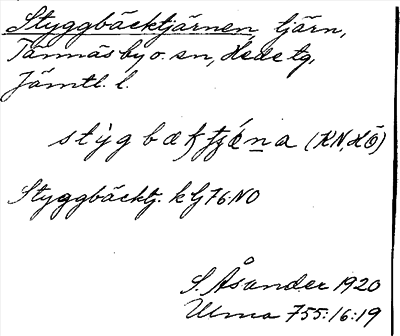 Styggbäcktjärnen, tjärn,
Tännäs by o. sn, Hede tg,
Jämtl. l.
(KN, HÖ)
Styggbäcktj. k Gj 76 NO
S. Åsander 1920
Ulma 755:16:19